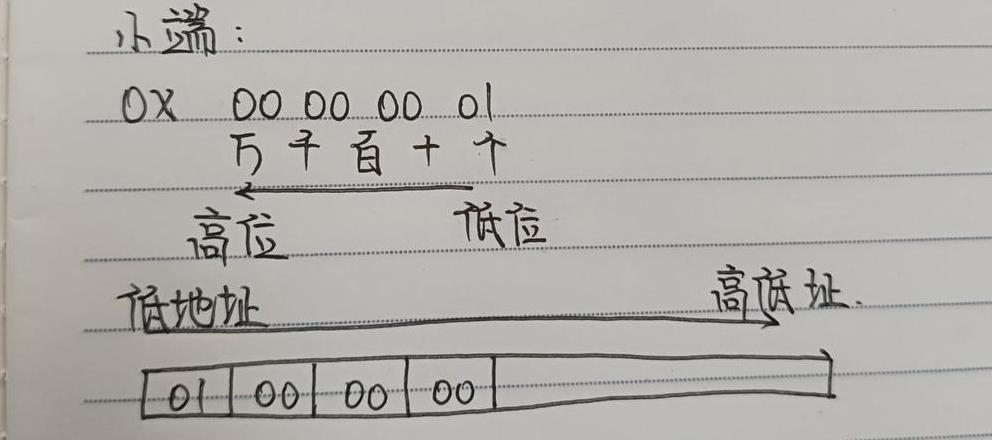 小端：
0X 00 00 00 01
万 千 百 十 个
高位 低位
低地址 高低址.
01 00 00 00